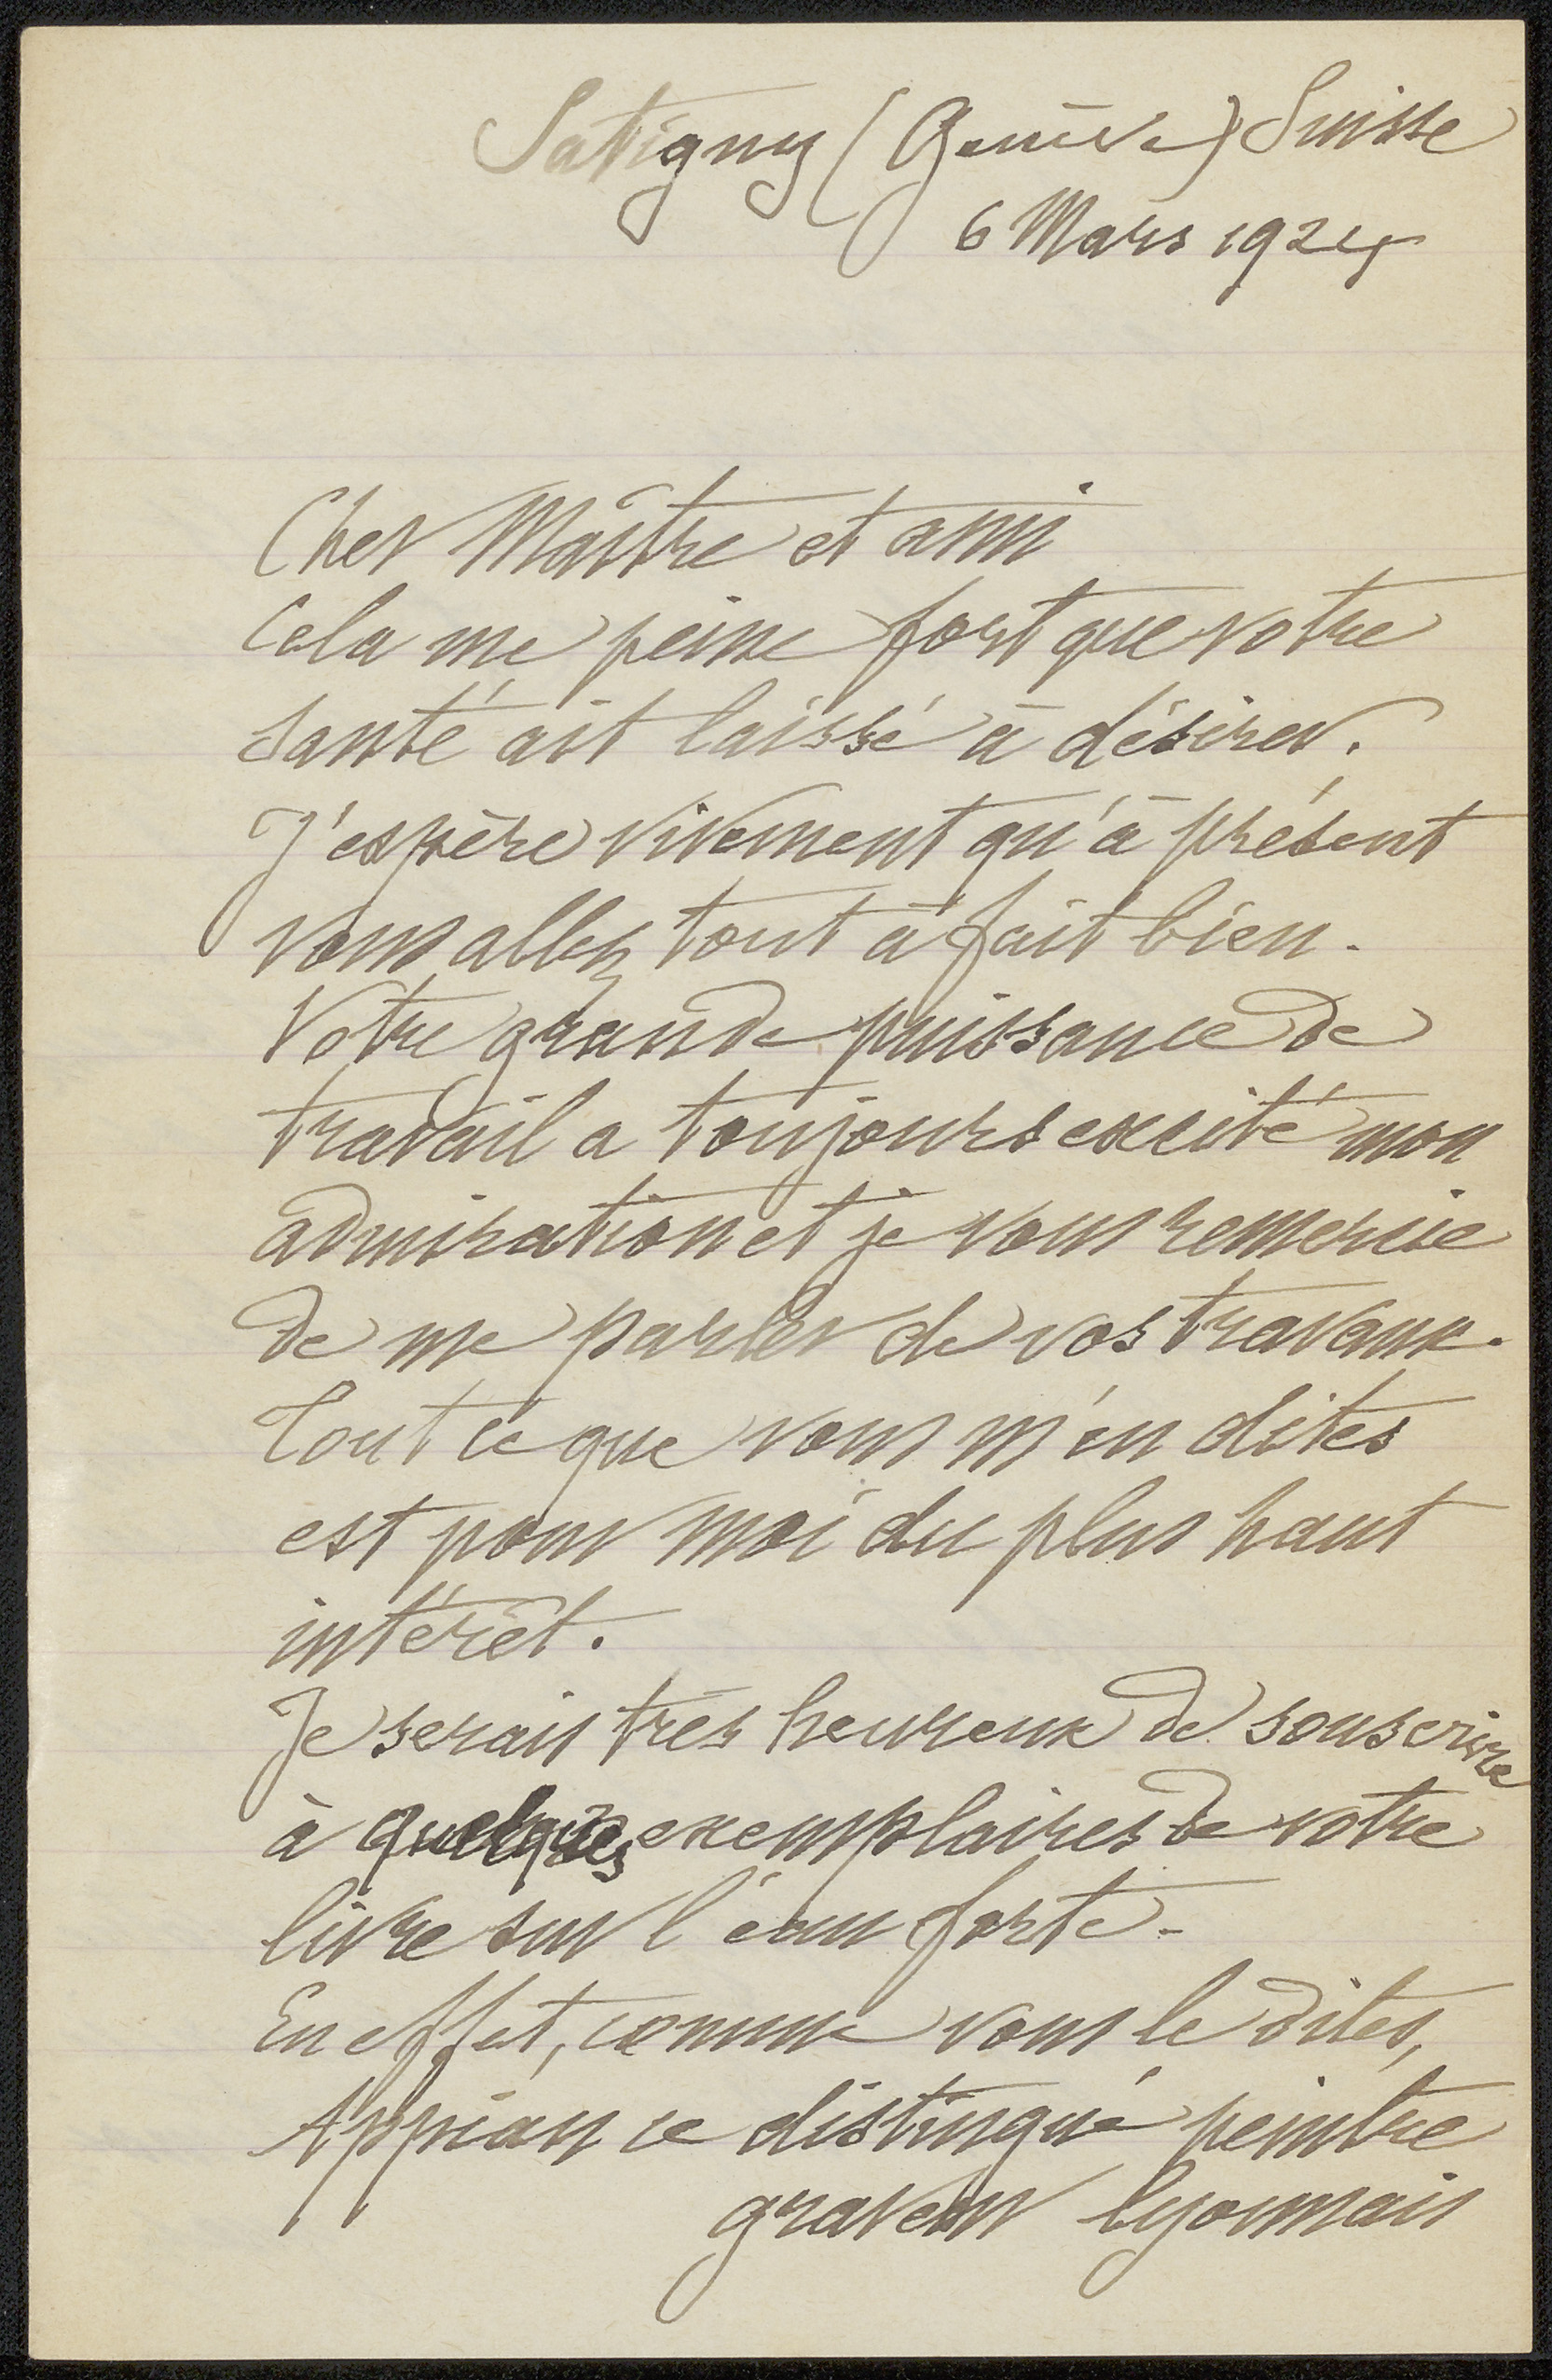 Satigny (Genève) Suisse
6 Mars 1924
Cher Maître et ami
Cela me peine fort que votre
santé ait laissé à désirer.
J'espère vivement qu'à présent
vous allez tout à fait bien.
Votre grande puissance de
travail a toujours excité mon
admiration et je vous remercie
de me parler de vos travaux.
Tout ce que vous m'en dites
est pour moi du plus haut
intérêt.
Je serais très heureux de souscrire
à quelques exemplaires de votre
livre sur l'eau forte.
En effet, comme vous le dites,
Appian ce distingué peintre
graveur lyonnais